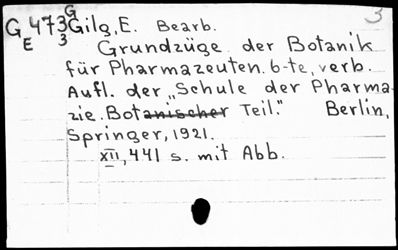 G 473 G Gilg, E. Bearb. 3
E 3
Grundzüge der Botanik
für Pharmazeuten. 6-te, verb.
Aufl. der „Schule der Pharma-
zie. Botanischer Teil." Berlin,
Springer, 1921.
XII, 441 s. mit Abb.